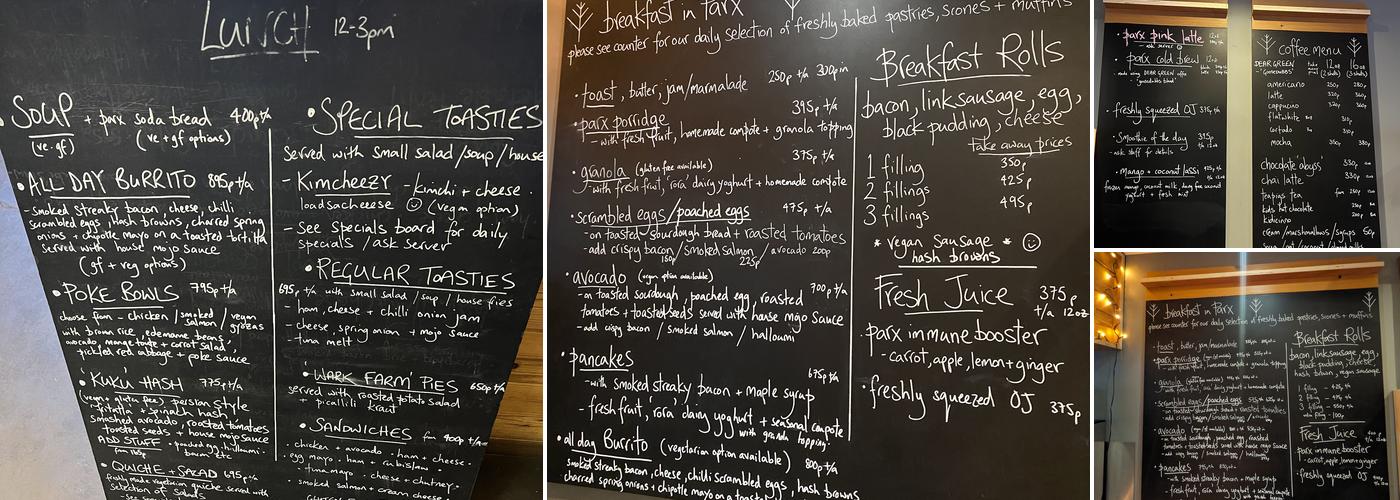 LUNCH 12-3pm
SOUP + parx soda bread 400p t/a
(ve·gf) (ve + gf options)
• ALL DAY BURRITO 895p t/a
- smoked streaky bacon, cheese, chilli
scrambled eggs, hash browns, charred spring
onions + chipotle mayo on a toasted tortilla
served with house mojo sauce
(gf + veg options)
• POKE BOWLS 795p t/a
choose from - chicken / smoked salmon / vegan gyozas
with brown rice, edemame beans,
avocado, mange toute + carrot salad,
pickled red cabbage + poke sauce
• KUKU HASH 775p t/a
(vegan + gluten free) persian style
frittatta + spinach hash
smashed avocado, roasted tomatoes
toasted seeds + house mojo sauce
ADD STUFF • poached egg, halloumi,
from 150p bacon etc
• QUICHE + SALAD 695p t/a
freshly made vegetarian quiche served with
selection of salads
• SPECIAL TOASTIES
served with small salad / soup / house
- Kimcheezy - kimchi + cheese
loadsacheese (vegan option)
- see specials board for daily
specials / ask server
• REGULAR TOASTIES
695p t/a with small salad / soup / house fries
- ham, cheese + chilli onion jam
- cheese, spring onion + mojo sauce
- tuna melt
• 'WARK FARM' PIES 650p t/a
served with roasted potato salad
+ picallili kraut
• SANDWICHES from 400p t/a
• chicken + avocado • ham + cheese •
egg mayo • ham + rubislaw •
• tuna mayo • cheese + chutney •
• smoked salmon + cream cheese •
breakfast in parx
please see counter for our daily selection of freshly baked pastries, scones + muffins
• toast, butter, jam/marmalade 250p t/a 300p in
• parx porridge 395p t/a
- with fresh fruit, homemade compote + granola topping
• granola (gluten free available) 375p t/a
- with fresh fruit, 'rora' dairy yoghurt + homemade compote
• scrambled eggs/poached eggs 475p t/a
- on toasted sourdough bread + roasted tomatoes
- add crispy bacon / smoked salmon / avocado 200p
150p 225p
• avocado (vegan option available) 700p t/a
- on toasted sourdough, poached egg, roasted
tomatoes + toasted seeds served with house mojo sauce
- add crispy bacon / smoked salmon / halloumi
• pancakes 675p t/a
- with smoked streaky bacon + maple syrup
- fresh fruit, 'rora' dairy yoghurt + seasonal compote
with granola topping
• all day Burrito (vegetarian option available) 800p t/a
smoked streaky bacon, cheese, chilli scrambled eggs, hash browns
charred spring onions + chipotle mayo on a toasted
Breakfast Rolls
bacon, link sausage, egg,
black pudding, cheese
take away prices
1 filling 350p
2 fillings 425p
3 fillings 495p
* vegan sausage *
hash browns
Fresh Juice 375p
t/a 12oz
parx immune booster
- carrot, apple, lemon + ginger
• freshly squeezed OJ 375p
• parx pink latte 12oz
- ask server
• parx cold brew 12oz
- made using DEAR GREEN coffee
• freshly squeezed OJ 375p t/a
• Smoothie of the day 375p
- ask staff for details
• mango + coconut lassi 425p t/a
frozen mango, coconut milk, dairy free coconut
yoghurt + fresh mint
coffee menu
DEAR GREEN 12oz 16oz
'Goosedubbs' (2 shots) (3 shots)
americano 250p 280p
latte 320p 360p
cappucino 320p 360p
flatwhite
cortado
mocha 350p 380p
chocolate abyss 330p
chai latte 330p
teapigs tea
kids hot chocolate
kidicino
cream/marshmallows/syrups 50p
breakfast in parx
please see counter for our daily selection of freshly baked pastries, scones + muffins
• toast, butter, jam/marmalade
• parx porridge
- with fresh fruit, homemade compote + granola topping
• granola
- with fresh fruit, 'rora' dairy yoghurt + homemade compote
• scrambled eggs/poached eggs
- on toasted sourdough bread + roasted tomatoes
- add crispy bacon / smoked salmon / avocado
• avocado
- on toasted sourdough, poached egg, roasted
tomatoes + toasted seeds served with house mojo sauce
- add crispy bacon / smoked salmon / halloumi
• pancakes
- with smoked streaky bacon + maple syrup
- fresh fruit, 'rora' dairy yoghurt + seasonal compote
Breakfast Rolls
bacon, link sausage, egg,
black pudding, cheese
hash brown, vegan sausage
1 filling
2 filling
3 filling
Fresh Juice
parx immune booster
- carrot, apple, lemon + ginger
• freshly squeezed OJ